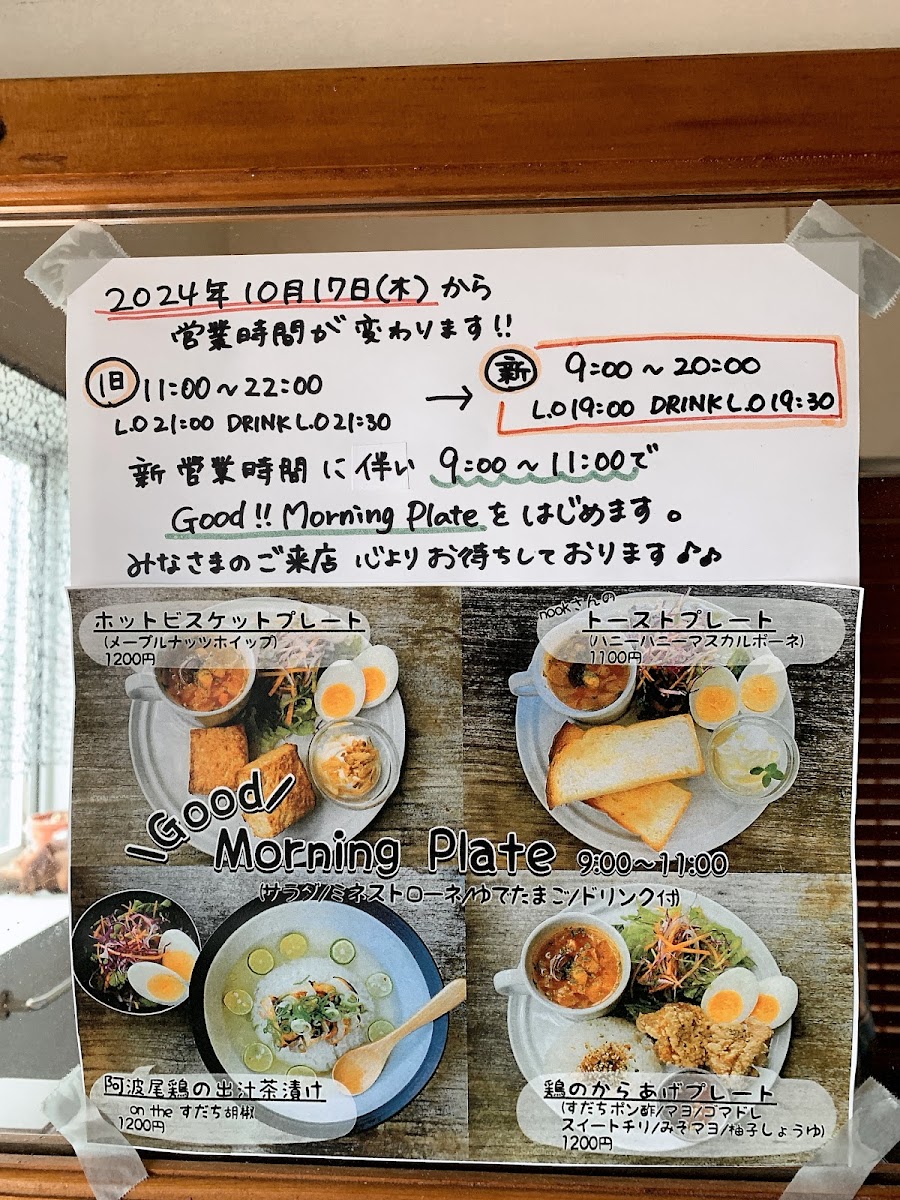 2024年10月17日(木)から
営業時間が変わります!!
旧 11:00～22:00
L.O 21:00 DRINK L.O 21:30
→
新 9:00～20:00
L.O 19:00 DRINK L.O 19:30
新営業時間に伴い 9:00～11:00で
Good!! Morning Plateをはじめます。
みなさまのご来店 心よりお待ちしております♪♪
ホットビスケットプレート
(メープルナッツホイップ)
1200円
nookさんの
トーストプレート
(ハニーハニーマスカルポーネ)
1100円
\Good/
Morning Plate 9:00～11:00
(サラダ/ミネストローネ/ゆでたまご/ドリンク付)
阿波尾鶏の出汁茶漬け
on the すだち胡椒
1200円
鶏のからあげプレート
(すだちポン酢/マヨ/ゴマドレ
スイートチリ/みそマヨ/柚子しょうゆ)
1200円